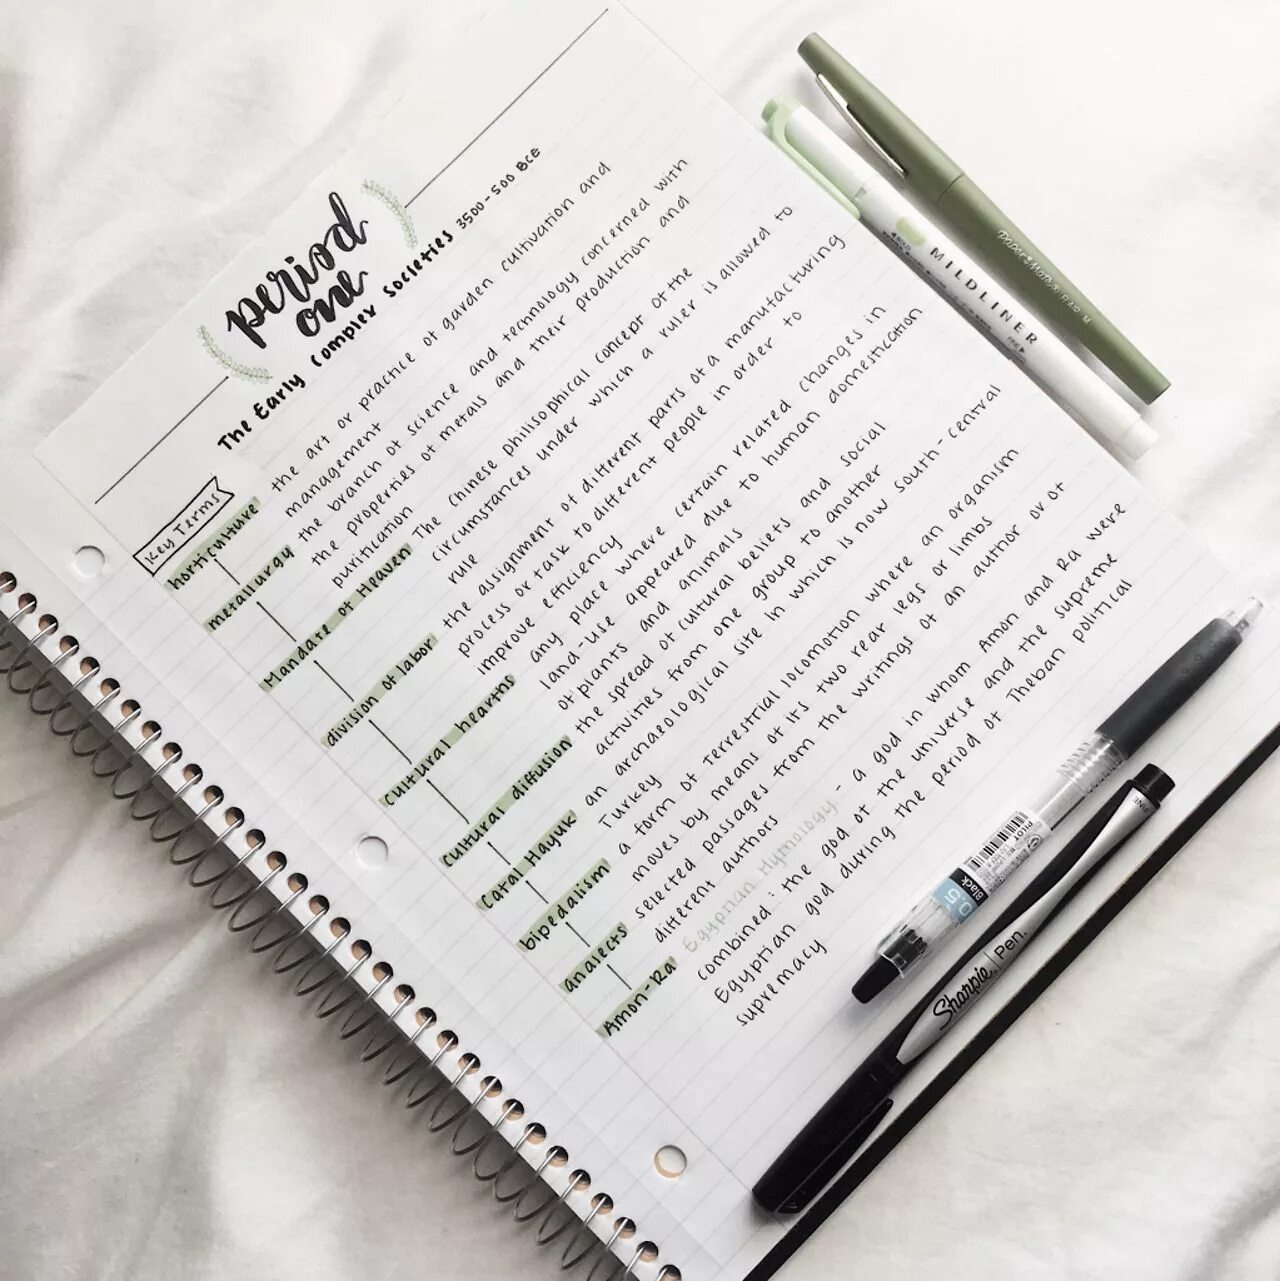 period
one
The Early Complex Societies 3500-500 BCE
Key Terms
horticulture the art or practice of garden cultivation and
management
metallurgy the branch of science and technology concerned with
the properties of metals and their production and
purification
Mandate of Heaven The Chinese philisophical concept of the
circumstances under which a ruler is allowed to
rule
division of labor the assignment of different parts of a manufacturing
process or task to different people in order to
improve efficiency
Cultural hearths any place where certain related changes in
land-use appeared due to human domestication
of plants and animals
Cultural diffusion the spread of cultural beliefs and social
activities from one group to another
Catal Hayuk an archaeological site in which is now South-Central
Turkey
bipedalism a form of terrestrial locomotion where an organism
moves by means of its two rear legs or limbs
analects selected passages from the writings of an author or of
different authors
Amon-Ra Egyptian Hymology - a god in whom Amon and Ra were
combined: the god of the universe and the supreme
Egyptian god during the period of Theban political
supremacy
Paper Mate FLAIR M
MILDLINER
PILOT
Black
0.5
Sharpie Pen.
FINE